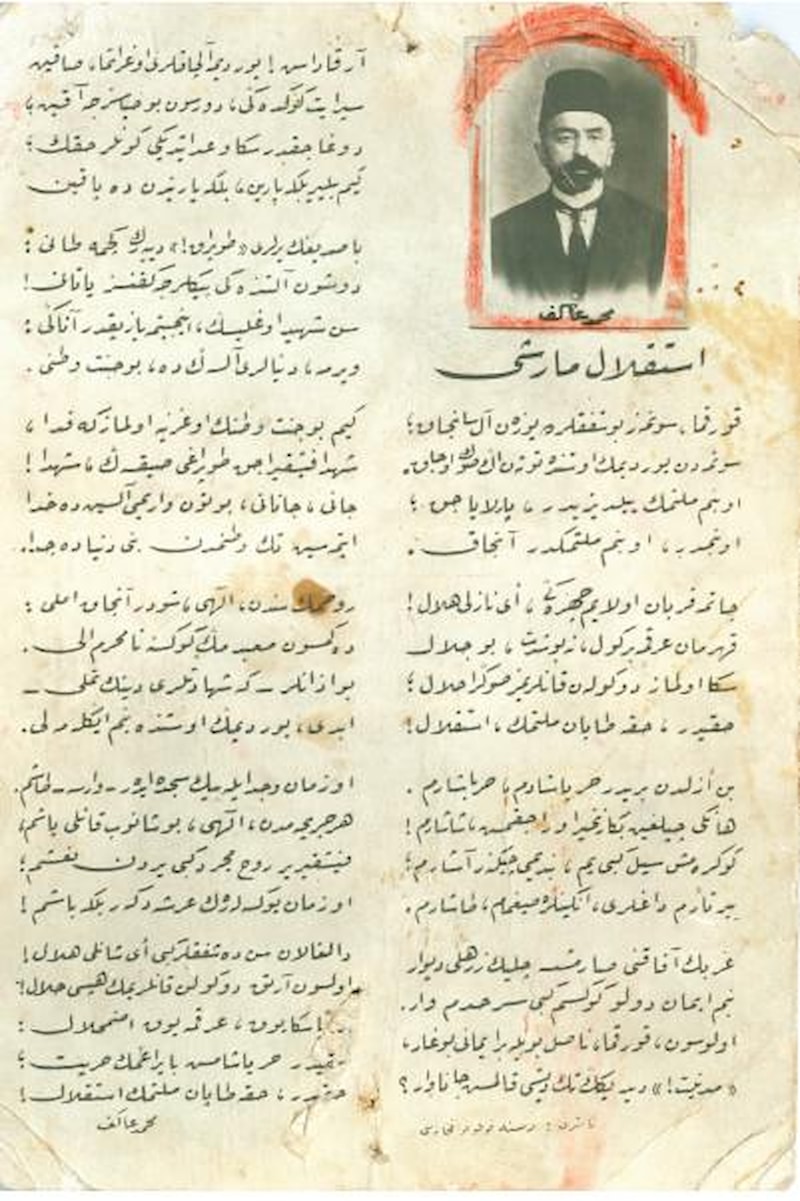 محمد عاكف
استقلال مارشى
قورقما، سونمز بو شفقلرده يوزن آل سانجاق؛
سونمه‌دن يورديمك اوستنده توتن اڭ صوڭ اوجاق.
او بنم ملتمك ييلديزيدر، پارلاياجق؛
او بنمدر، او بنم ملتمكدر آنجاق.
چاتمه قربان اولايم چهره‌ڭى، أى نازلى هلال!
قهرمان عرقمه بر كول، نه بو شدت، بو جلال
سكا اولماز دوكولن قانلريمز صوكرا حلال؛
حقيدر، حقه طاپان ملتمك، استقلال!
بن أزلدن بريدر حر ياشادم، حر ياشارم.
هانكى چيلغين بكا زنجير اوراجقمش، شاشارم!
كوكره‌مش سيل كبى يم، بنديمى چيكنر، آشارم؛
ييرتارم داغلرى، انكينلره صيغمام، طاشارم.
غربك آفاقنى صارمشسه چليك زرهلى ديوار
بنم ايمان دولو كوكسم كبى سرحدم وار.
اولوسون، قورقما، ناصل بويله بر ايمانى بوغار،
«مدنيت!» ديديكك تك ديشى قالمش جاناوار؟
آرقاداش! يورديمه آلچاقلرى اوغراتما، صاقين
سپر ايت كوكده‌كى، دورسون بو حياسزجه آقين؛
دوغاجقدر سكا وعد ايتديكى كونلر حقك؛
كيم بيلير، بلكه يارين، بلكه ياريندن ده ياقين
باصديغك يرلرى «طوپراق!» ديه‌رك كچمه طانى:
دوشون آلتنده‌كى بيكلرجه كفنسز ياتانى!
سن شهيد اوغليسك، اينجيتمه يازيقدر آتاكى:
ويرمه، دنيالرى آلسه‌ك ده، بو جنت وطنى.
كيم بو جنت وطنك اوغرينه اولماز كه فدا،
شهدا فيشقيراجق طوپراغى صيقسه‌ڭ، شهدا!
جانى، جانانى، بوتون واريمى آلسين ده خدا
ايتمه‌سين تك وطنمدن بنى دنياده جدا.
روحمك سندن، الهى، شودر آنجاق املى:
دكمسون معبدمك كوكسنه نامحرم الى.
بو اذانلر ــ كه شهادتلرى دينك تملى ــ
ابدى، يورديمك اوستنده بنم ايكله‌ملى.
او زمان وجد ايله بيك سجده ايدر ــ وارسه ــ طاشم.
هر جريحه‌مدن، الهى، بوشانوب قانلى ياشم،
فيشقيرير روح مجرد كبى يردن نعشم؛
او زمان يوكسله‌رك عرشه دكر بلكه باشم!
دالغالان سن ده شفقلر كبى أى شانلى هلال!
اولسون آرتق دوكولن قانلريمك هپسى حلال!
سكا يوق، عرقمه يوق اضمحلال:
حقيدر حر ياشامش بايراغمك حريت؛
حقيدر، حقه طاپان ملتمك استقلال!
محمد عاكف